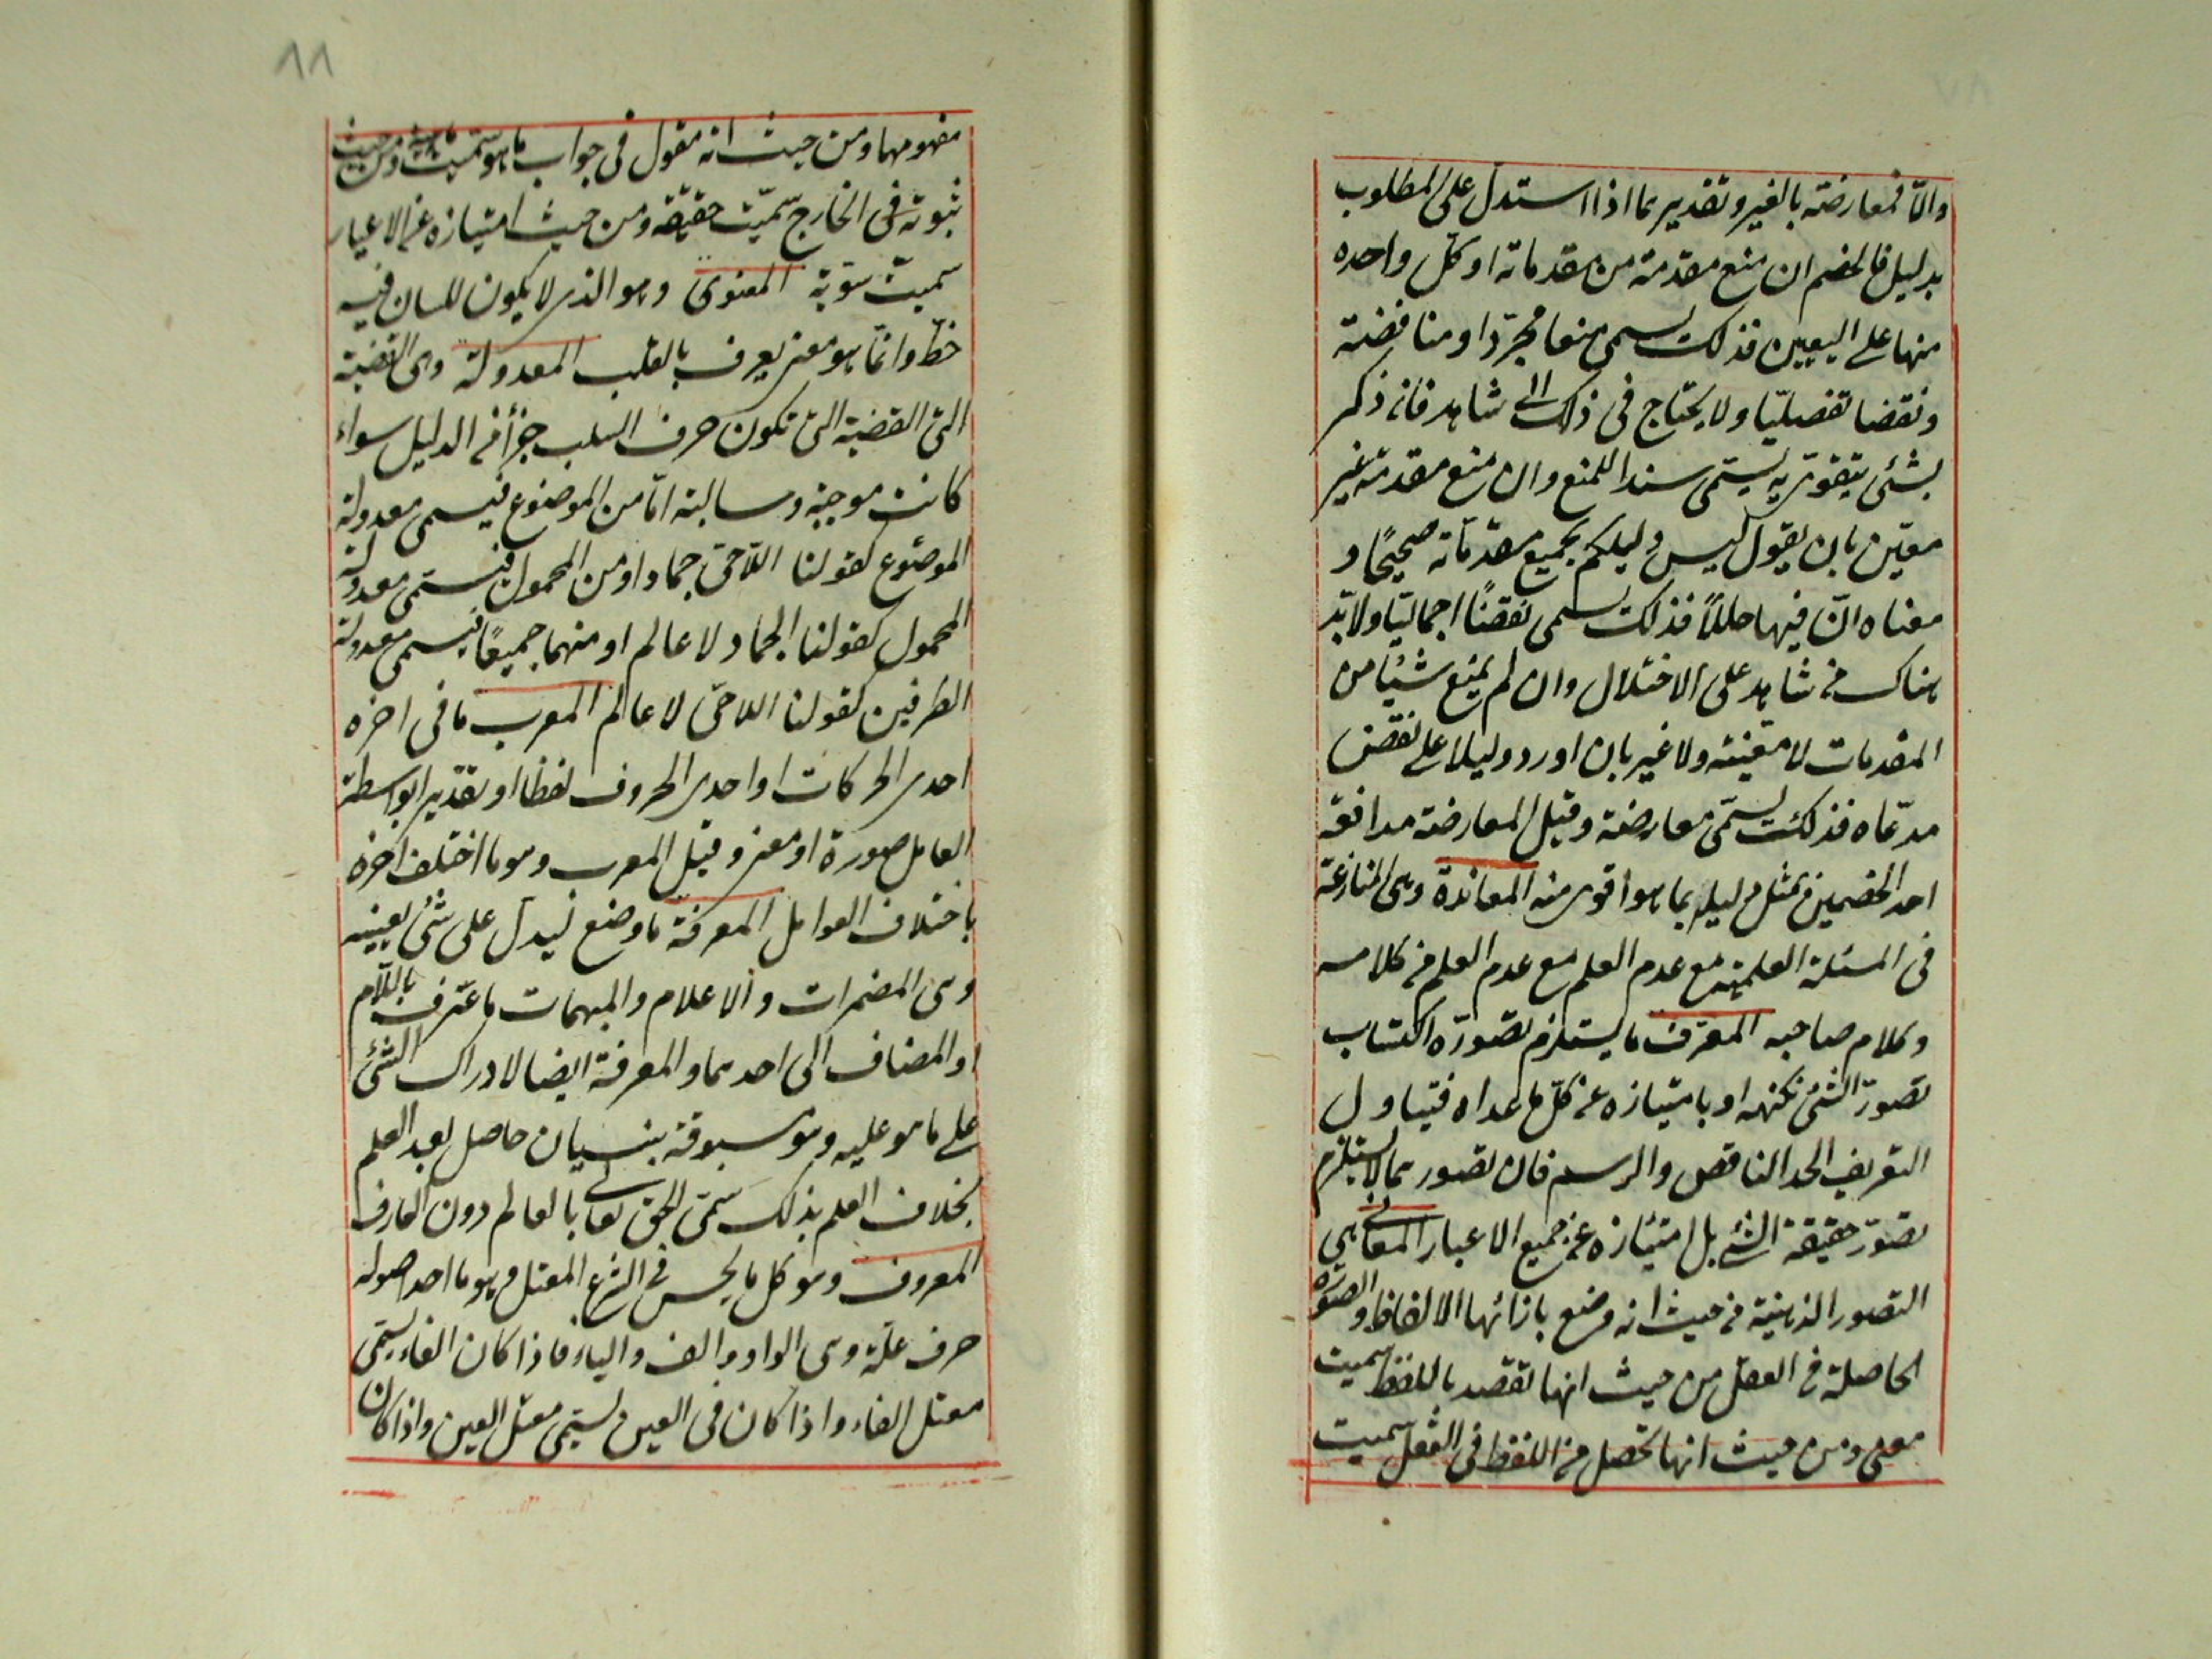 والّا فمعارضته بالغير وتقديرها اذا استدل على المطلوب
بدليل فالخصم ان منع مقدمة من مقدماته او كل واحده
منها على اليعيين فذلك يسمى منعا مجردا ومناقضة
ونقضا تفصيليّا ولا يحتاج فى ذلك الى شاهد فان ذكر
بشئ يتقوى به يسمّى سندا للمنع وان منع مقدمة غير
معيّن بان يقول ليس دليلكم بجميع مقدّماته صحيحًا و
معناه انّ فيها خللاً فذلك يسمى نقضًا اجماليّا ولا بدّ
هناك من شاهد على الاختلال وان لم يمنع شيئا من
المقدمات لا معينة ولا غير بان اورد دليلا على نقض
مدّعاه فذلك يسمّى معارضة وقيل المعارضة مدافعة
احد الخصمين بمثل دليله بما هو اقوى منه المعاندة وهى المنازعة
فى المسئلة العلمية مع عدم العلم مع عدم العلم من كلامه
وكلام صاحبه المعرّف ما يستلزم تصوّره اكتساب
تصوّر الشئ بكنهه او بامتيازه عن كلّ ما عداه فتياول
التعريف الحد الناقص والرسم فان تصورهما لا يستلزم
تصوّر حقيقة الشئ بل امتيازه عن جميع الاعيار المعانى هى
التصور الذهنية من حيث انه وضع بازائها الالفاظ والصورة
الحاصلة فى العقل من حيث انها تقصد باللفظ سميت
معنى ومن حيث انها تحصل من اللفظ فى العقل سميت
٨٨
مفهومها ومن حيث انه مقول فى جواب ما هو سميت ماهية ومن حيث
ثبوته فى الخارج سمّيت حقيقة ومن حيث امتيازه عن الاعيار
سميت هوية المعنوى وهو الذى لا يكون للسان فيه
حظّ وانّما هو معنى يعرف بالقلب المعدولة وهى القضية
التى القضية التى تكون حرف السلب جزأ من الدليل سواء
كانت موجبة وسالبة امّا من الموضوع فيسمى معدولة
الموضوع كقولنا اللّاحىّ جماد او من المحمول فيسمّى معدولة
المحمول كقولنا الجماد لا عالم او منهما جميعًا فيسمى معدولة
الطرفين كقولنا اللاحىّ لا عالم المعرب ما فى اخره
احدى الحركات او احدى الحروف لفظا او تقديرا بواسطة
العامل صورة او معنى وقيل المعرب وهو ما اختلف اخره
باختلاف العوامل المعرفة ما وضع ليدلّ على شئ بعينه
وهى المضمرات والاعلام والمبهمات ما عرّف باللّام
او المضاف الى احدهما والمعرفة ايضا لادراك الشئ
على ما هو عليه وهو مسبوقة بنسيان حاصل بعد العلم
بخلاف العلم بذلك سمّى الحق تعالى بالعالم دون العارف
المعروف وهو كل ما يحس فى الشرع المعتل وهو ما احد اصوله
حرف علّة وهى الواو والف والياء فاذا كان الفاء يسمّى
معتل الفاء واذا كان فى العين يسمّى معتل العين واذا كان